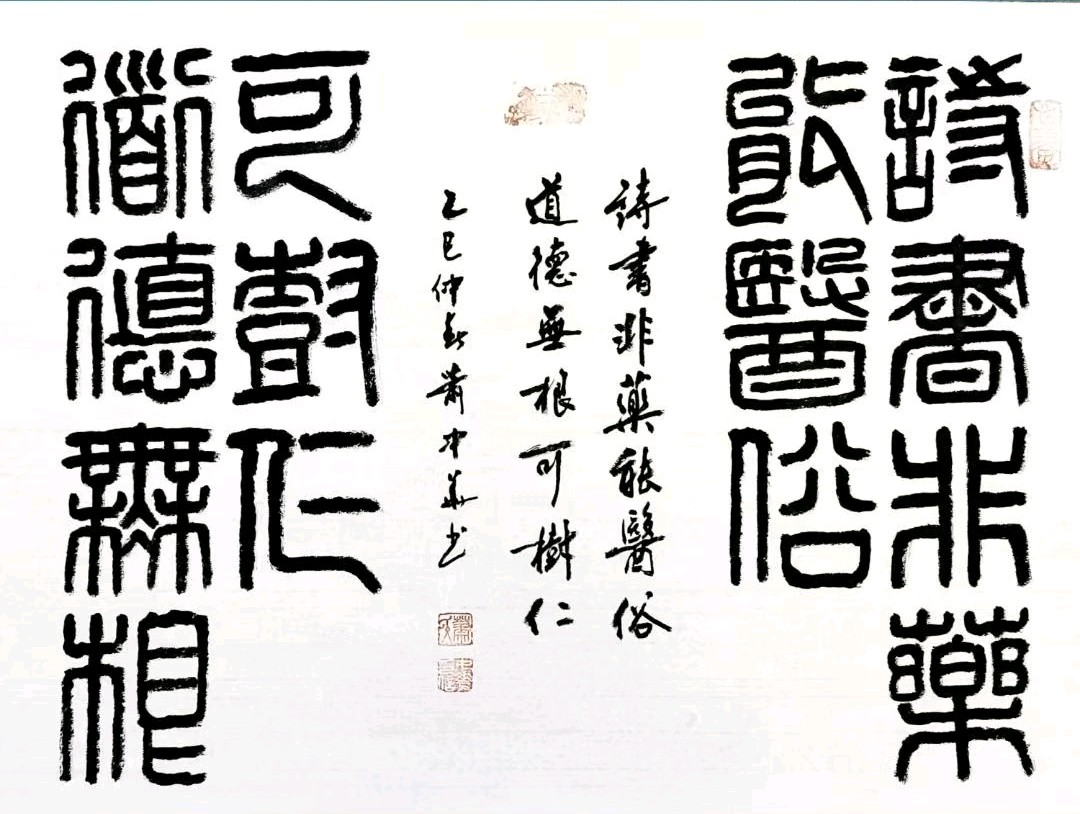 詩書非藥
能醫俗
詩書非藥能醫俗
道德無根可樹仁
乙巳仲春蕭冲華书
道德無根
可樹仁